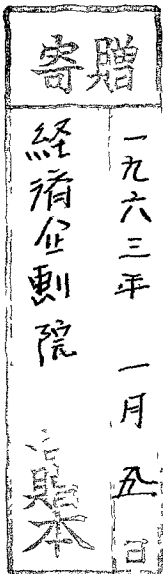 寄贈
一九六三年 一月 日
経済企劃院 本